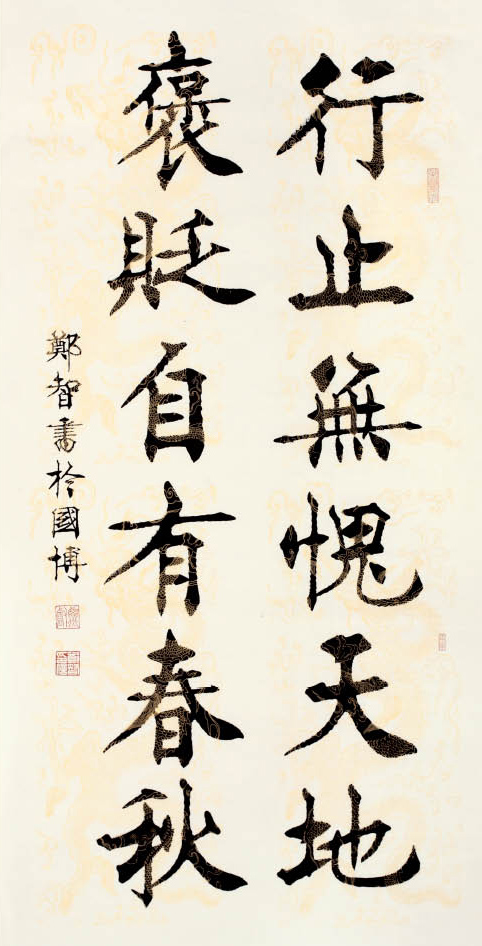 行止無愧天地
褒貶自有春秋
鄭智書於國博